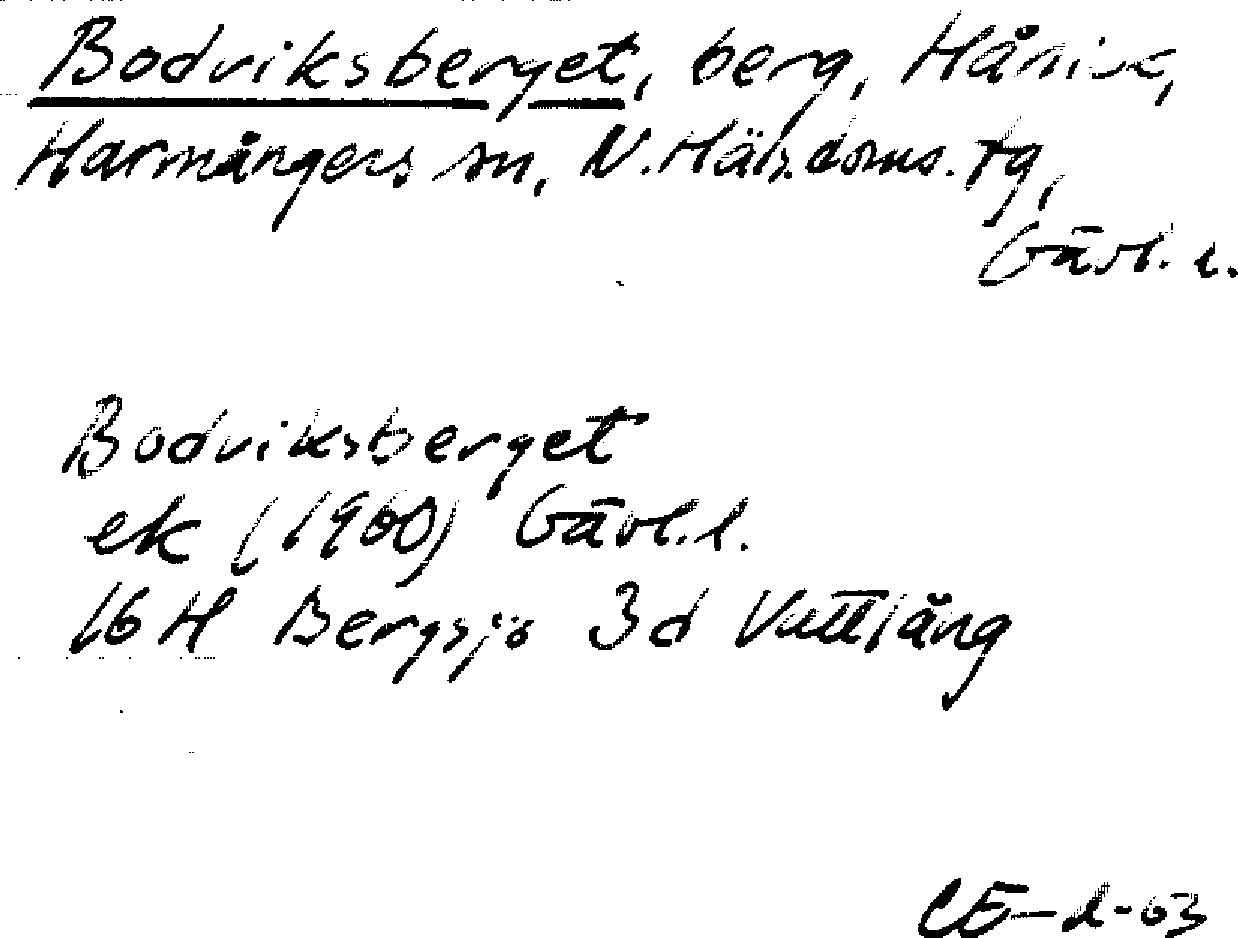 Bodviksberget, berg, Hånick,
Harmångers sn, N. Häls. doms. tg,
Gävl. l.
Bodviksberget
ek (1960) Gävl. l.
16 H Bergsjö 3d Vattlång
CE-d-63